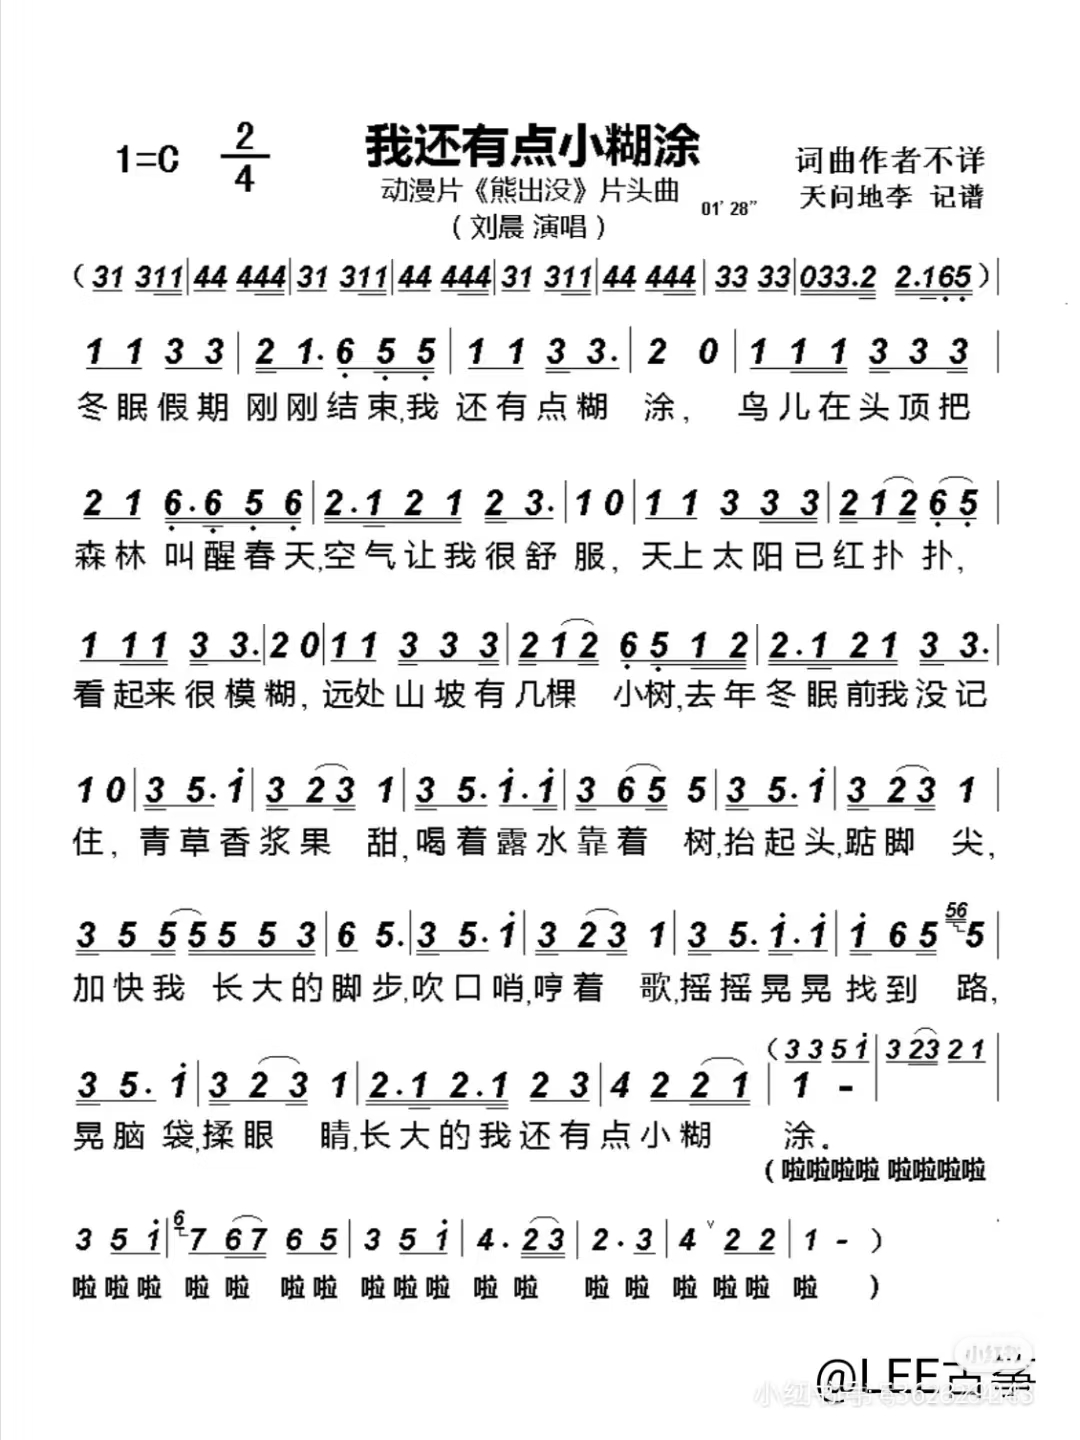 1=C 2/4 我还有点小糊涂 词曲作者不详
动漫片《熊出没》片头曲 01’28” 天问地李 记谱
(刘晨 演唱)
(31 311|44 444|31 311|44 444|31 311|44 444|33 33|033.2 2.165)|
1 1 3 3|2 1. 6 5 5|1 1 3 3.|2 0|1 1 1 3 3 3|
冬眠假期 刚刚结束,我 还有点糊 涂, 鸟儿在头顶把
2 1 6.6 5 6|2.1 2 1 2 3.|1 0|1 1 3 3 3|2 1 2 6 5|
森林 叫醒春天,空气让我很舒 服, 天上太阳已红扑 扑,
1 1 1 3 3.|2 0|1 1 3 3 3|2 1 2 6 5 1 2|2.1 2 1 3 3.|
看起来很模糊, 远处山坡有几棵 小树,去年冬眠前我没记
1 0|3 5.i|3 2 3 1|3 5.i.i|3 6 5 5|3 5.i|3 2 3 1|
住, 青草香浆果 甜,喝着露水靠着 树,抬起头,踮脚 尖,
3 5 5 5 5 5 3|6 5.|3 5.i|3 2 3 1|3 5.i.i|i 6 5 56 5|
加快我 长大的脚步,吹口哨,哼着 歌,摇摇晃晃找到 路,
(3 3 5 i|3 23 2 1
3 5. i|3 2 3 1|2.1 2.1 2 3|4 2 2 1|1 -|
晃脑 袋,揉眼 睛,长大的我还有点小糊 涂.
(啦啦啦啦 啦啦啦啦
3 5 i|6 7 6 7 6 5|3 5 i|4. 2 3|2. 3|4 ∨ 2 2|1 - )
啦啦啦 啦 啦 啦啦 啦啦啦 啦 啦 啦 啦 啦 啦啦 啦 )
小红书
@LEE古筝